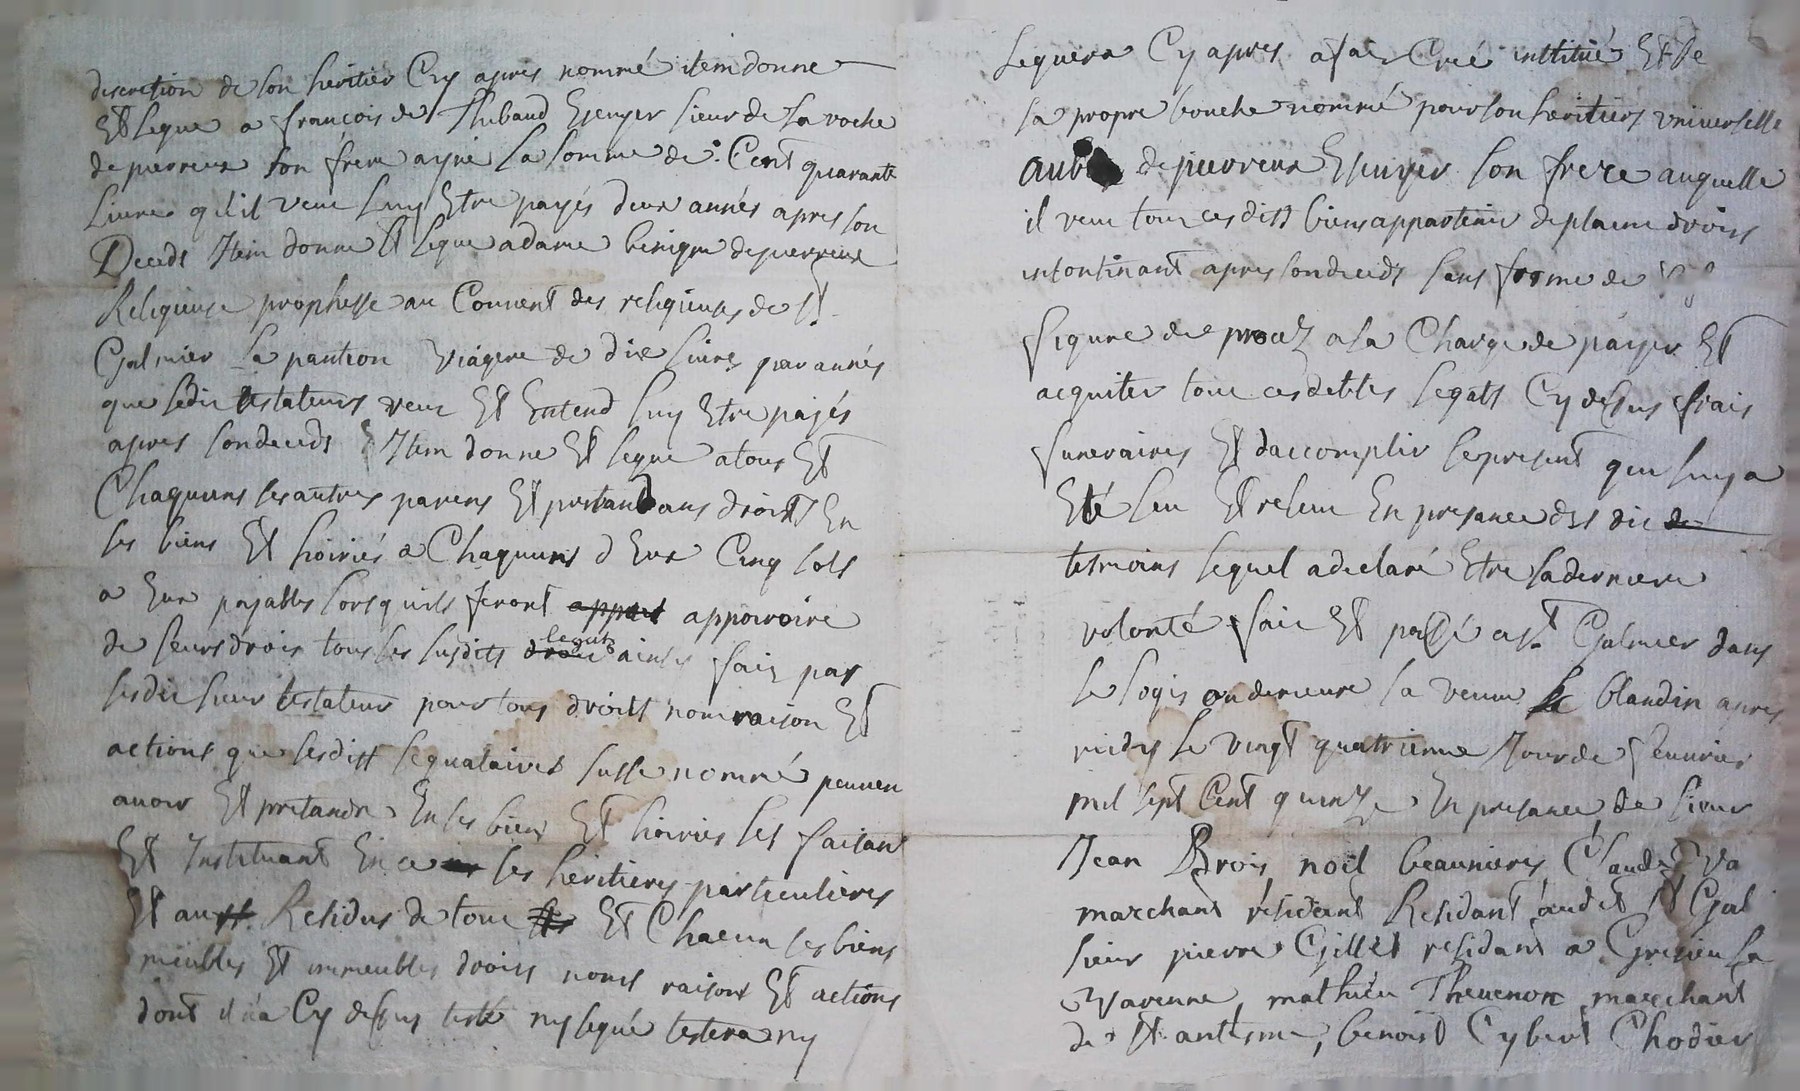 discretion de son heritier Cy apres nommé item donne
Et legue a françois de Thibaud Escuyer sieur de La roche
de pierreux son frere ayné La somme de Cent quarante
Livres qu'il veut luy Etre payés deux annés apres son
Decedt Item donne Et legue a dame benigne de pierreux
Religieuse prophesse au Convent des religieuses de St
Galmier La pantion viagere de dix livres par annés
que ledit testateurs veut Et Entend luy Etre payés
apres son decedt Item donne Et legue a tous Et
Chaquuns ses autres parens Et pretandans droits En
ses biens Et hoiriés a Chaquuns d Eux Cinq sols
a Eux payables lorsquils feront apparoire
de leurs drois tous les susdits leguts ainsy fait par
ledit sieur testateur pour tous droits nom raison Et
actions que lesdits legataires susse nommé peuven
avoir Et pretandre En ses biens Et hoiries les faisant
Et Instituant En ce ses heritiers particulieres
Et au Residus de tout Et Chacun ses biens
meubles Et immeubles droits noms raisons Et actions
dont il n'a Cy dessus testé ny legué testera ny
leguera Cy apres a fait Créé institué Et de
sa propre bouche nommé pour son heritiers universelle
de pierreux Escuyer son frere auquelle
il veut tous ces dits biens appartenir de plaine droits
incontinant apres son decedt sans forme de ny
figure de procez a la Charge de payer Et
acquiter tout ces debtes legats Cy dessus frais
funeraires Et daccomplir le present qui luy a
Eté leu Et releu En presance des dit
tesmoins lequel a declaré Etre sa derniere
volonté fait Et passé a St Galmier dans
le logis ou demeure la veuve blandin apres
midy le vingt quatrieme Jour de fevrier
mil sept Cent quinze En presance de sieur
Jean Brois noel beauniers Claude
marchant résidant Residant audit St Gal
sieur pierre Gillet residant a Gresieu La
Varenne, mathieu Thevenon marchant
de St antesme, benoist Cybert Chodier